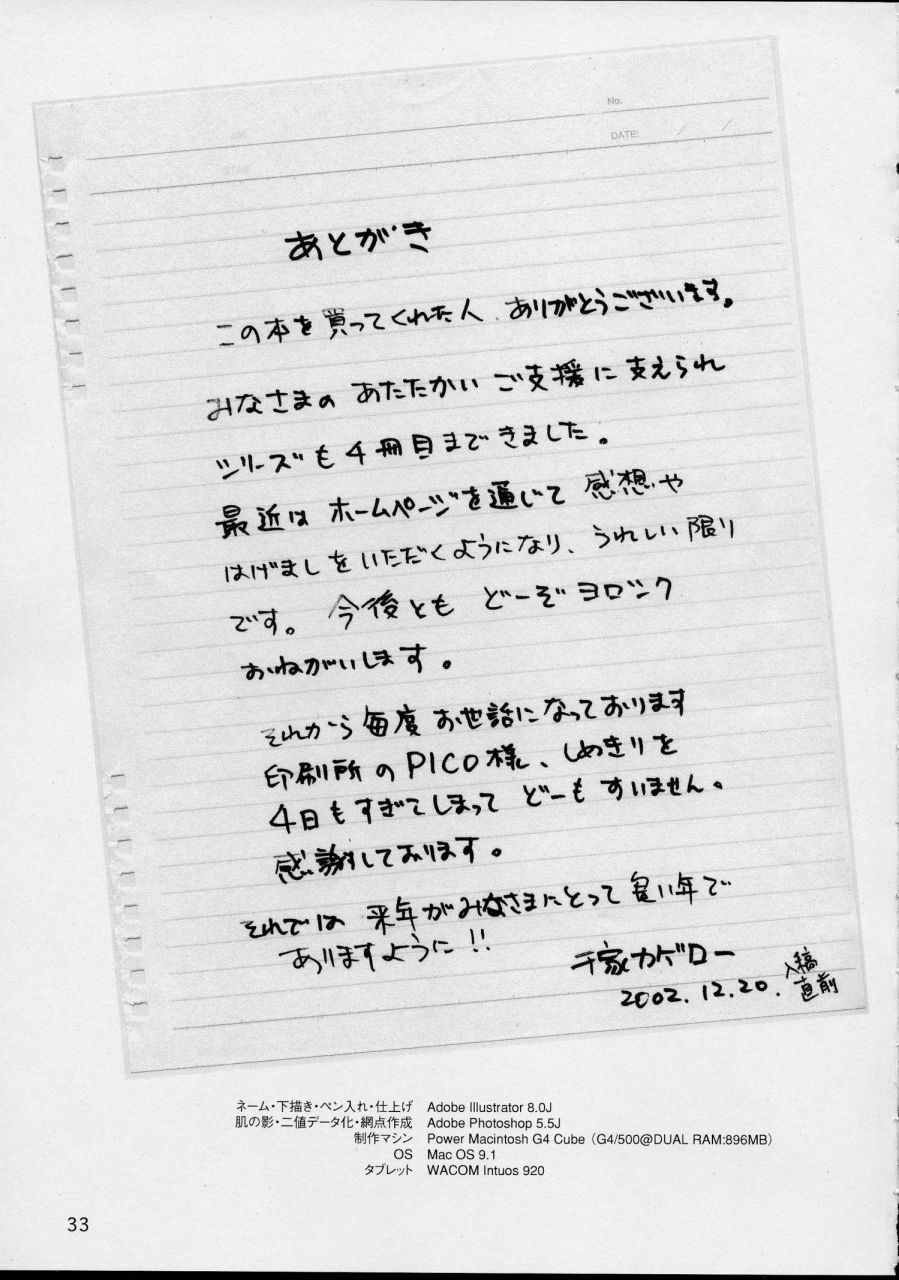 No.
DATE:
あとがき
この本を買ってくれた人、ありがとうございます。
みなさまの あたたかい ご支援に 支えられ
シリーズも 4冊目まできました。
最近は ホームページを通じて 感想や
はげましをいただくようになり、うれしい限り
です。今後とも どーぞ ヨロシク
おねがいします。
それから 毎度 お世話になっております
印刷所の PICO様、しめきりを
4日もすぎてしまって どーも すいません。
感謝しております。
それでは 来年がみなさまにとって 良い年で
ありますように!!
千家カゲロー
2002.12.20. 入稿
直前
ネーム・下描き・ペン入れ・仕上げ Adobe Illustrator 8.0J
肌の影・二値データ化・網点作成 Adobe Photoshop 5.5J
制作マシン Power Macintosh G4 Cube（G4/500@DUAL RAM:896MB）
OS Mac OS 9.1
タブレット WACOM Intuos 920
33